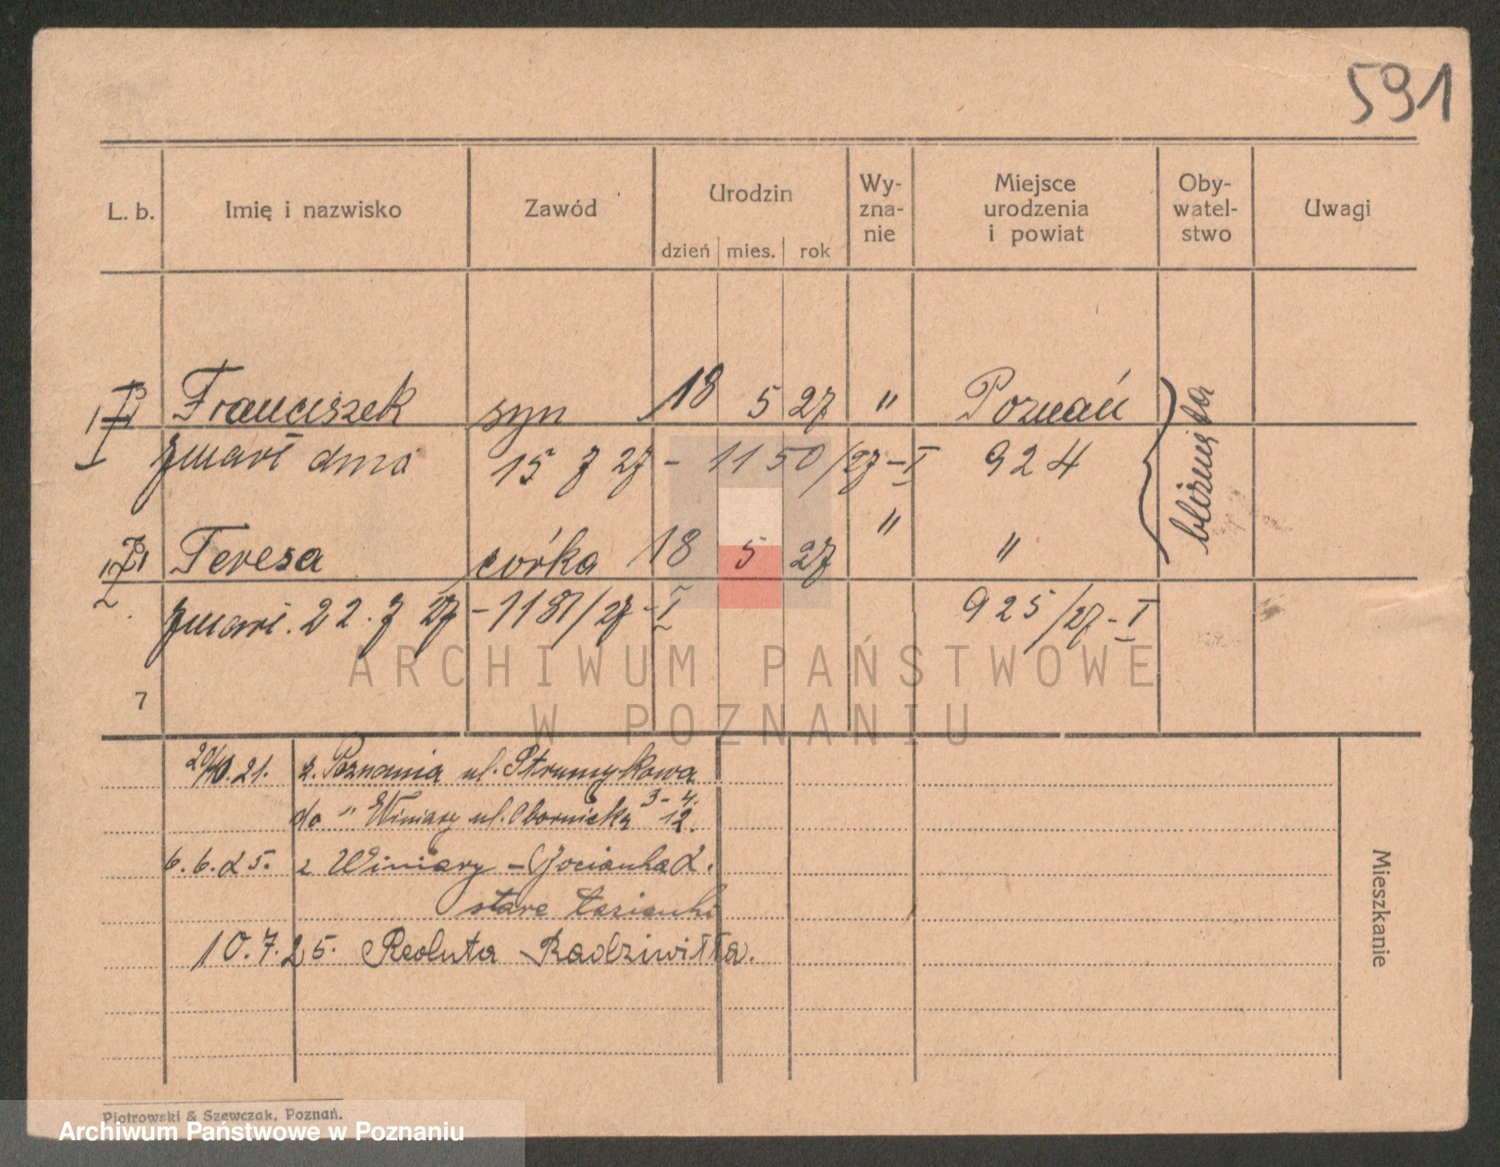 591
L. b. Imię i nazwisko Zawód Urodzin dzień mies. rok Wy-zna-nie Miejsce urodzenia i powiat Oby-watel-stwo Uwagi
Franciszek syn 18 5 27 " Poznań
zmarł dnia 15 7 27 - 1150/27 - I 924
bliźnięta
Teresa córka 18 5 27 " "
zmarł. 22. 7 27 - 1181/27 - I 925/27 - I
ARCHIWUM PAŃSTWOWE
W POZNANIU
7
20/10.21. z. Poznania ul. Strumykowa
3-4.
do " Winiary ul. Obornicka 12.
6.6.25. z Winiary -
stare Łazienki
10.7.25. Reduta Radziwiłła.
Mieszkanie
Piotrowski & Szewczak, Poznań.
Archiwum Państwowe w Poznaniu